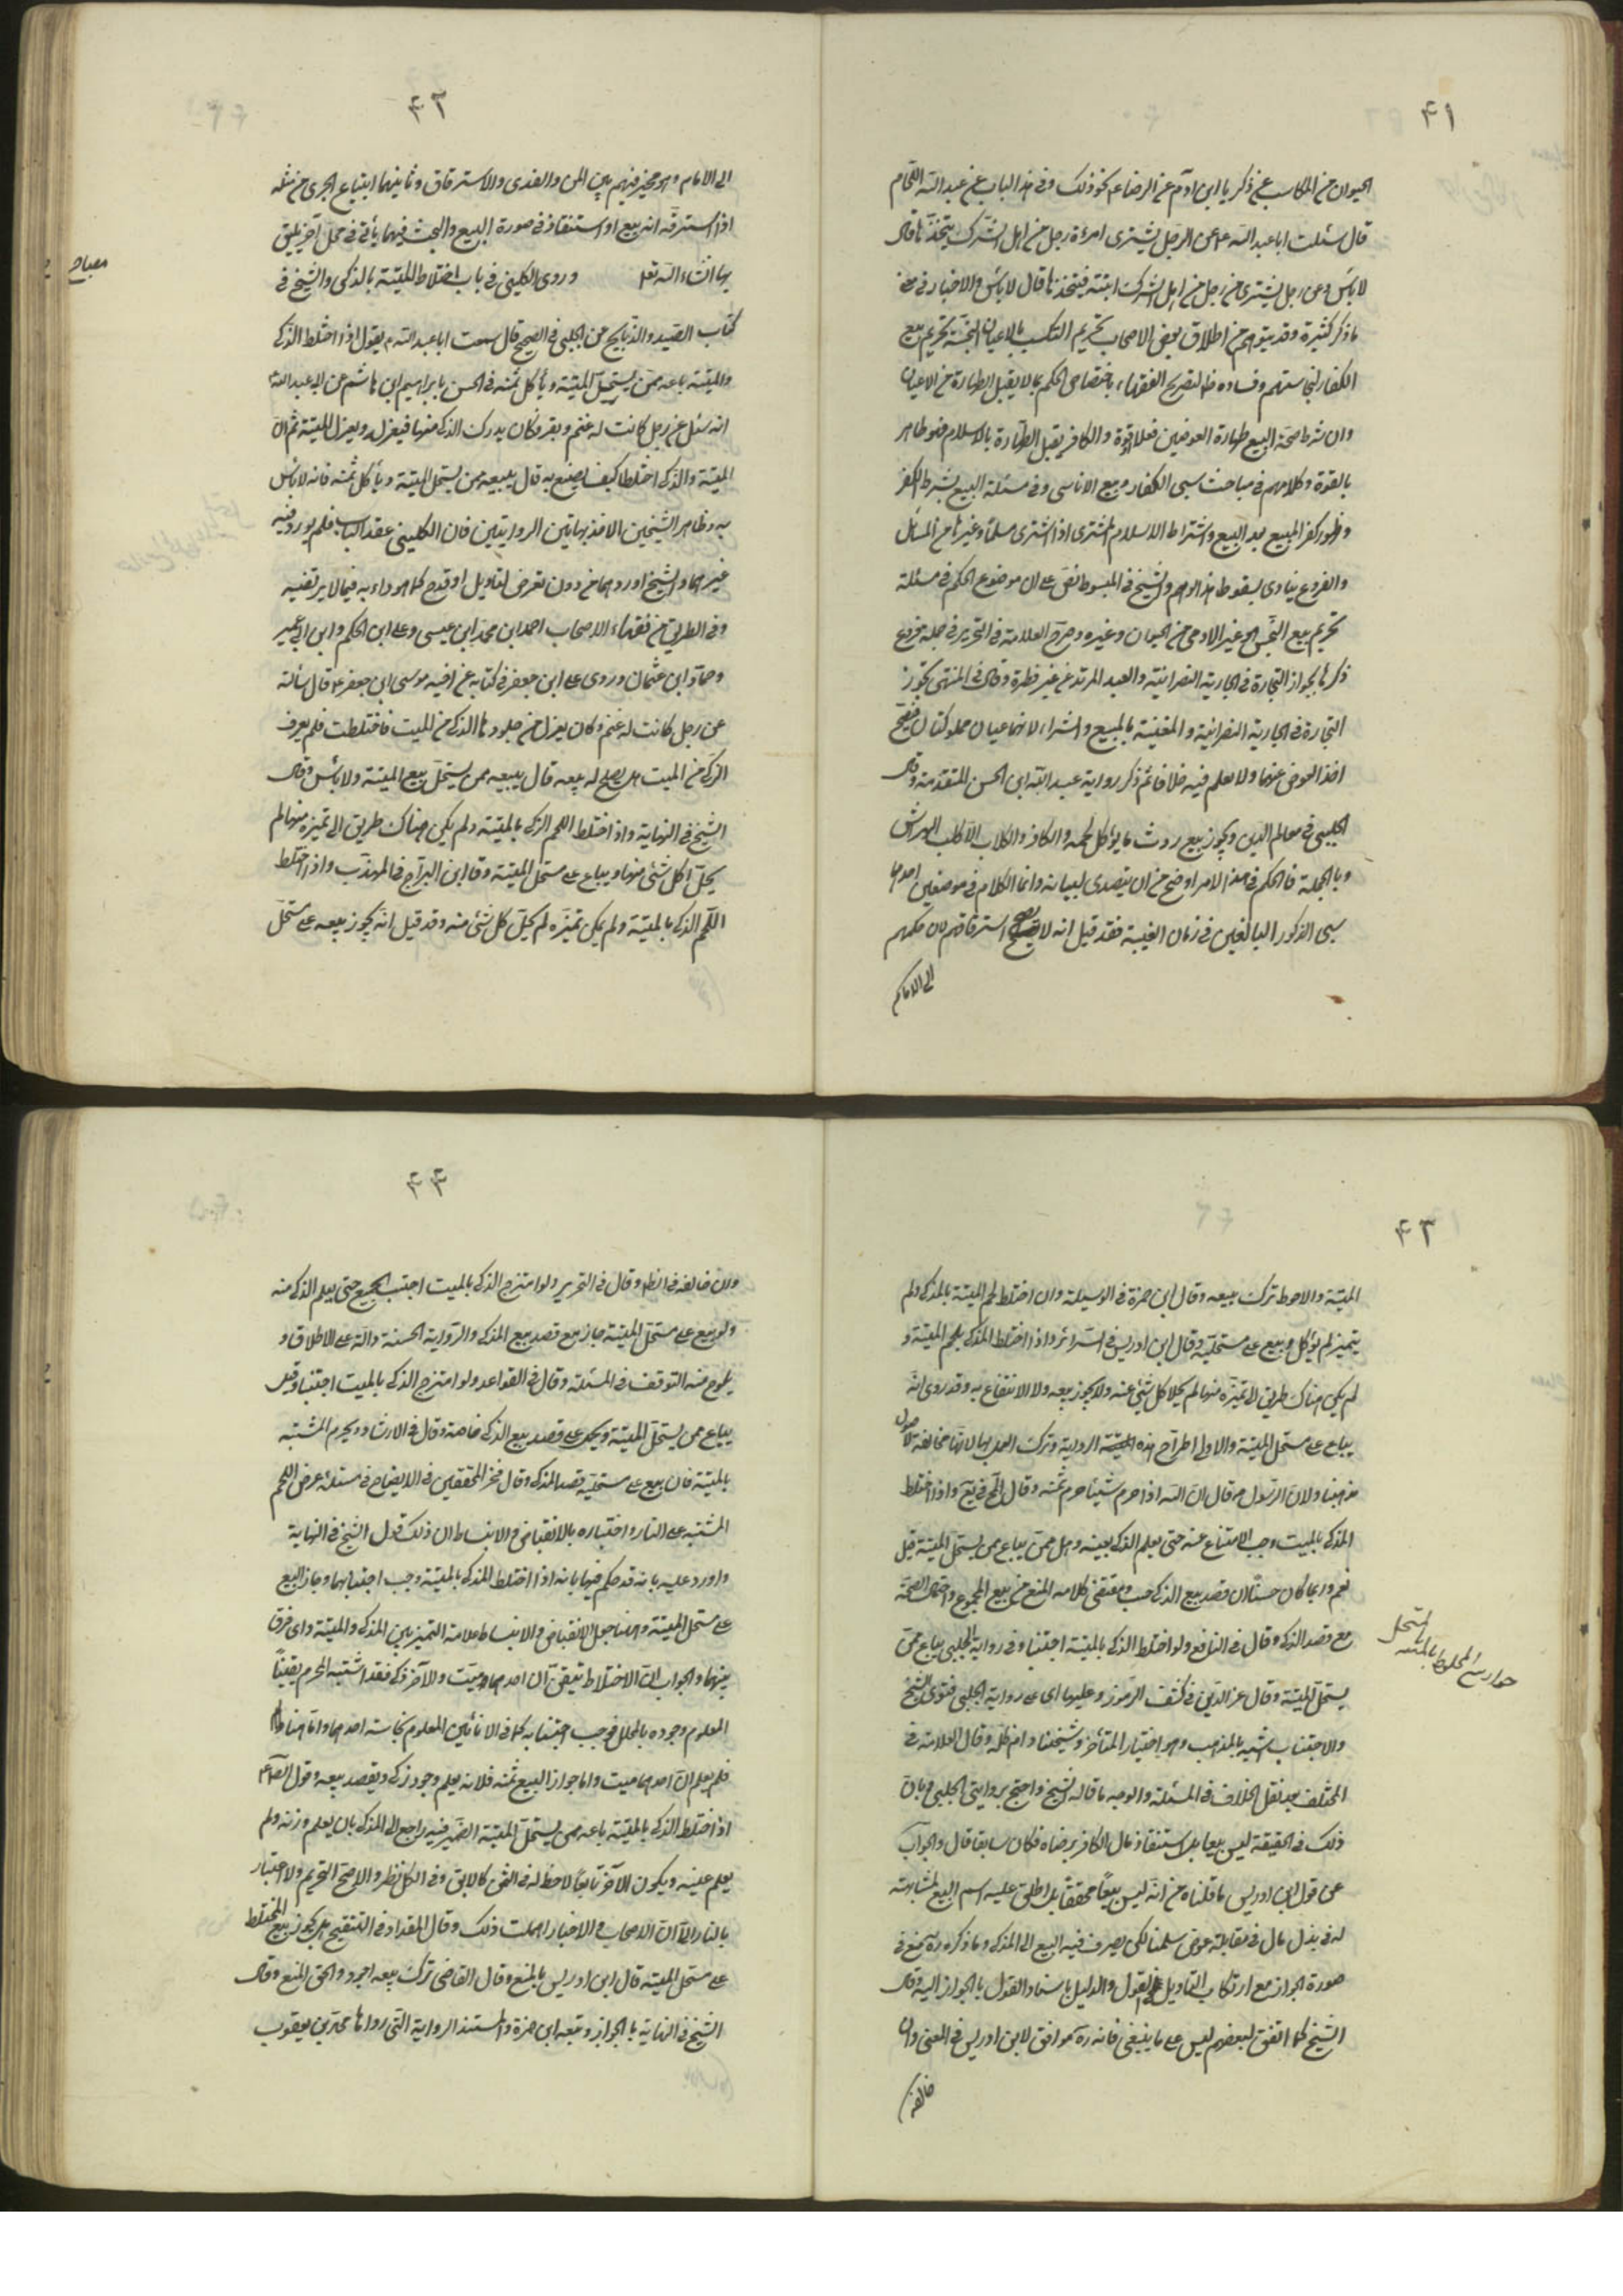 ۴۱
الحیوان من المکاسب عن زکریا ابن ادم عن الرضا ع نحو ذلک وفی هذا الباب عن عبد الله اللحام
قال سئلت ابا عبد الله ع عن الرجل یشتری امرءة رجل من اهل الشرک یتخذها قال
لا باس وعن رجل یشتری من رجل من اهل الشرک ابنته فیتخذها قال لا باس والاخبار فی معنی
ما ذکر کثیرة وقد یتوهم من اطلاق بعض الاصحاب تحریم التکسب بالاعیان النجسة تحریم بیع
الکفار لنجاستهم وفساده ظ لتصریح الفقهاء باختصاص الحکم بما لا یقبل الطهارة من الاعیان
وان شرط صحة البیع طهارة العوضین فعلا او قوة والکافر یقبل الطهارة بالاسلام فهو طاهر
بالقوة وکلامهم فی مباحث سبی الکفار وبیع الاناسی وفی مسئلة البیع بشرط الکفر
وظهور کفر المبیع بعد البیع واشتراط الاسلام المشتری اذا اشتری مسلما وغیرها من المسائل
والفروع ینادی بسقوط هذا الوهم والشیخ فی المبسوط نص علی ان موضوع الحکم فی مسئلة
تحریم بیع النجس الحی غیر الادمی من الحیوان وغیره وصرح العلامة فی التحریر فی جملة فروع
ذکرها بجواز التجارة فی الجاریة النصرانیة والعبد المرتد عن غیر فطرة وقال فی المنتهی تجوز
التجارة فی الجاریة النصرانیة والمغنیة بالبیع والشراء لانهما عینان مملوکتان فیصح
اخذ العوض عنهما ولا نعلم فیه خلافا ثم ذکر روایة عبد الله ابن الحسن المتقدمة وقال
الحلبی فی معالم الدین ویجوز بیع روث ما یؤکل لحمه والکافر والکلاب الا کلب الهراش
وبالجملة فالحکم فی هذا الامر اوضح من ان یتصدی لبیانه وانما الکلام فی موضعین احدهما
سبی الذکور البالغین فی زمان الغیبة فقد قیل انه لا یصح استرقاقهم لان حکمهم
الی الامام
۴۲
الی الامام وهو مخیر فیهم بین المن والفدی والاسترقاق وثانیهما ابتیاع الحربی من مثله
اذا استرقه انه بیع او استنقاذ فی صورة البیع والبحث فیهما یأتی فی محل آخر یلیق
بها انشاء الله تعا وروی الکلینی فی باب اختلاط المیتة بالذکی والشیخ فی
مصباح
کتاب الصید والذبایح عن الحلبی فی الصحیح قال سمعت ابا عبد الله ع یقول اذا اختلط الذکی
والمیتة باعه ممن یستحل المیتة ویأکل ثمنه فی الحسن بابراهیم ابن هاشم عن ابی عبد الله ع
انه سئل عن رجل کانت له غنم وبقر فکان یدرک الذکی منها فیعزله ویعزل المیتة ثم ان
المیتة والذکی اختلطا کیف یصنع به قال یبیعه ممن یستحل المیتة ویأکل ثمنه فانه لا باس
به وظاهر الشیخین الاخذ بهاتین الروایتین فان الکلینی عقد الباب فلم یورد فیه
غیرهما والشیخ اوردهما من دون تعرض لتاویل او قدح کما هو دابه فیما لا یرتضیه
وفی الطریق من فقهاء الاصحاب احمد ابن محمد ابن عیسی وعلی ابن الحکم وابن ابی عمیر
وحماد ابن عثمان وروی علی ابن جعفر فی کتابه عن اخیه موسی ابن جعفر ع قال سألته
عن رجل کانت له غنم وکان یعزل من جلودها الذکی من المیت فاختلطت فلم یعرف
الذکی من المیت هل یصلح له بیعه قال یبیعه ممن یستحل بیع المیتة ولا بأس وقال
الشیخ فی النهایة واذا اختلط اللحم الذکی بالمیتة ولم یکن هناک طریق الی تمیزه منها لم
یحل اکل شئ منها ویباع علی مستحل المیتة وقا ابن البراج فی المهذب واذا اختلط
اللحم الذکی بالمیتة ولم یکن تمیزه لم یحل کل شئ منه وقد قیل انه یجوز بیعه علی مستحل
۴۳
المیتة والاحوط ترک بیعه وقال ابن حمزة فی الوسیلة وان اختلط لحم المیتة بالمذکی ولم
یتمیز لم یؤکل وبیع علی مستحلیه وقال ابن ادریس فی السرائر واذا اختلط المذکی بلحم المیتة و
لم یکن هناک طریق الی تمیزه منها لم یحل اکل شئ منه ولا یجوز بیعه ولا الانتفاع به وقد روی انه
یباع علی مستحل المیتة والاولی اطراح هذه الروایة وترک العمل بها لانها مخالفة لاصول
مذهبنا ولان الرسول ص قال ان الله اذا حرم شیئا حرم ثمنه وقال المح فی یع واذا اختلط
المذکی بالمیت وجب الامتناع عنه حتی یعلم الذکی بعینه وهل یباع ممن یستحل المیتة قیل
نعم وربما کان حسنا ان قصد بیع الذکی حسب ومقتضی کلامه المنع من بیع المجموع واختصاص الصحة
مع قصد الذکی وقال فی النافع ولو اختلط الذکی بالمیتة اجتنبا وفی روایة الحلبی یباع ممن
یستحل المیتة وقال عز الدین فی کشف الرموز وعلیها ای علی روایة الحلبی فتوی الشیخ
والاجتناب اشبه بالمذهب وهو اختیار المتأخر وشیخنا دام ظله وقال العلامة فی
المختلف بعد نقل الخلاف فی المسئلة والوجه ما قاله الشیخ واحتج بروایتی الحلبی وبان
ذلک فی الحقیقة لیس بیعا بل استنقاذ مال الکافر برضاه فکان سایغا قال والجواب
عن قول ابن ادریس ما قلناه من انه لیس بیعا محققا بل اطلق علیه اسم البیع لمشابهته
له فی بذل مال فی مقابلة عوض سلمنا لکن یصرف فیه البیع الی المذکی وما ذکره ره یمنع فی
صورة الجواز مع ارتکاب التاویل فی القول والدلیل باسناد القول بالجواز الیه وقال
الشیخ کما اتفق لبعضهم لیس علی ما ینبغی فانه ره موافق لابن ادریس فی المعنی وان
خالفه
۴۴
وان خالفه فی الظ وقال فی التحریر ولو امتزج الذکی بالمیت اجتنب الجمیع حتی یعلم الذکی منه
ولو بیع علی مستحل المیتة جاز مع قصد بیع المذکی والروایة الحسنة دالة علی الاطلاق و
یلوح منه التوقف فی المسئلة وقال فی القواعد ولو امتزج الذکی بالمیت اجتنبا وقیل
یباع ممن یستحل المیتة ویحمل علی قصد بیع الذکی خاصة وقال فی الارشاد ویحرم المشتبه
بالمیتة فان بیع علی مستحلیه قصد المذکی وقال فخر المحققین فی الایضاح فی مسئلة عرض اللحم
المشتبه علی النار واختباره بالانقباض والانبساط ان ذلک قول الشیخ فی النهایة
واورد علیه بانه قد حکم فیها بانه اذا اختلط المذکی بالمیتة وجب اجتنابهما وجاز البیع
علی مستحل المیتة وهنا جعل الانقباض والانبساط علامة التمیز بین المذکی والمیتة وای فرق
بینهما والجواب ان الاختلاط تیقن ان احدهما میت والآخر ذکی فقد اشتبه المحرم یقینا
المعلوم وجوده بالمحلل فوجب اجتنابه کما فی الانائین المعلوم نجاسة احدهما واما هنا
فلم یعلم ان احدهما میت واما جواز البیع ثمة فلانه یعلم وجود ذکی ویقصد بیعه وقول الصاع
اذا اختلط الذکی بالمیتة باعه ممن یستحل المیتة الضمیر فیه راجع الی المذکی بان یعلم وزنه ولم
یعلم عینه ویکون الآخر تابعا لا حظ له فی الثمن کالابق وفی الکل نظر والاصح التحریم ولا اعتبار
بالنار الا ان الاصحاب والاخبار اهملت ذلک وقال المقداد فی التنقیح هل یجوز بیع المختلط
علی مستحل المیتة قال ابن ادریس بالمنع وقال القاضی ترک بیعه اجود والحق المنع وقال
الشیخ فی النهایة بالجواز وتبعه ابن حمزة والمستند الروایة التی رواها محمد بن یعقوب